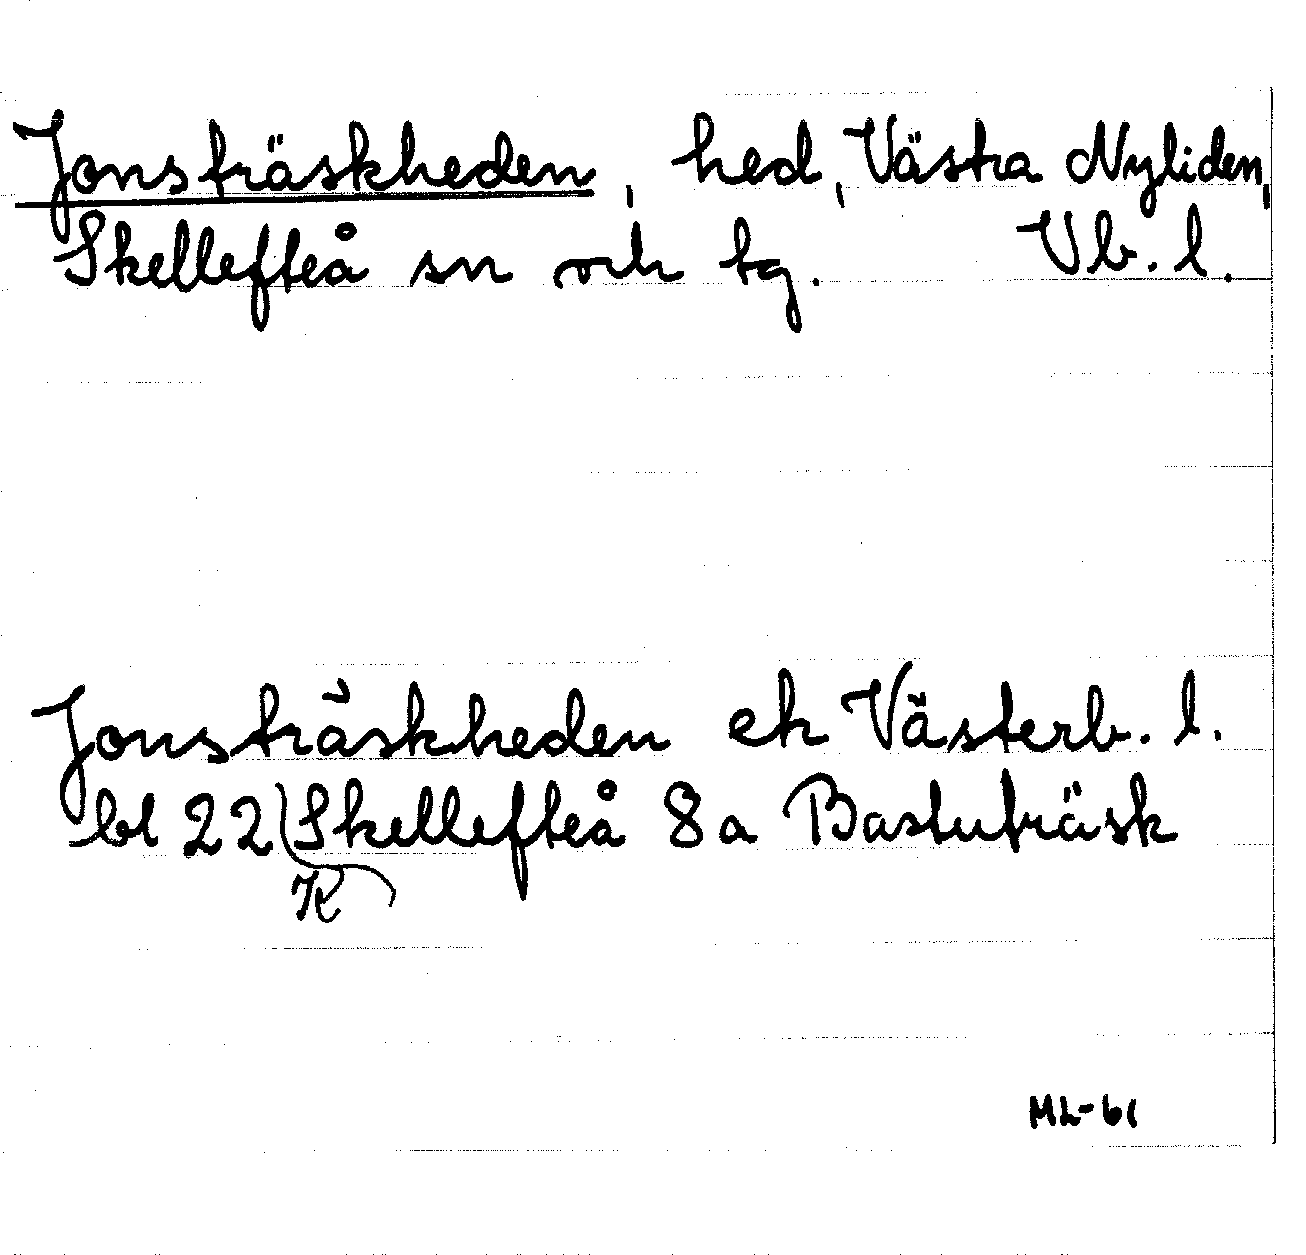 Jonsträskheden, hed, Västra Nyliden,
Skellefteå sn och tg. Vb. l.
Jonsträskheden ek Västerb. l.
bl 22 Skellefteå 8a Bastuträsk
K
ML-61